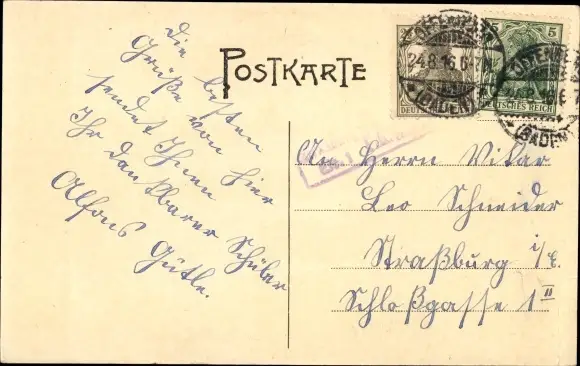 POSTKARTE
Die besten
Grüße von hier
sendet Ihnen
Ihr dankbarer Schüler
Alfons Gütle.
24.8.16.6-7N.
(BADEN)
5 5
DEUTSCHES REICH
(BADEN)
An Herrn Vikar
Leo Schneider
Straßburg i/E.
Schloßgasse 1 II